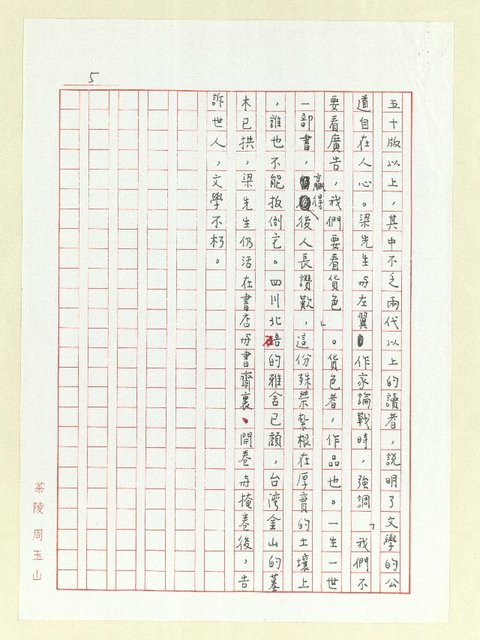 5
五十版以上，其中不乏兩代以上的讀者，說明了文學的公
道自在人心。梁先生與左翼作家論戰時，強調「我們不
要看廣告，我們要看貨色」。貨色者，作品也。一生一世
一部書，贏得後人長讚歎，這份殊榮紮根在厚實的土壤上
，誰也不能扳倒它。四川北碚的雅舍已頹，台灣金山的墓
木已拱，梁先生仍活在書店與書齋裏、開卷與掩卷後，告
訴世人，文學不朽。
茶陵 周玉山